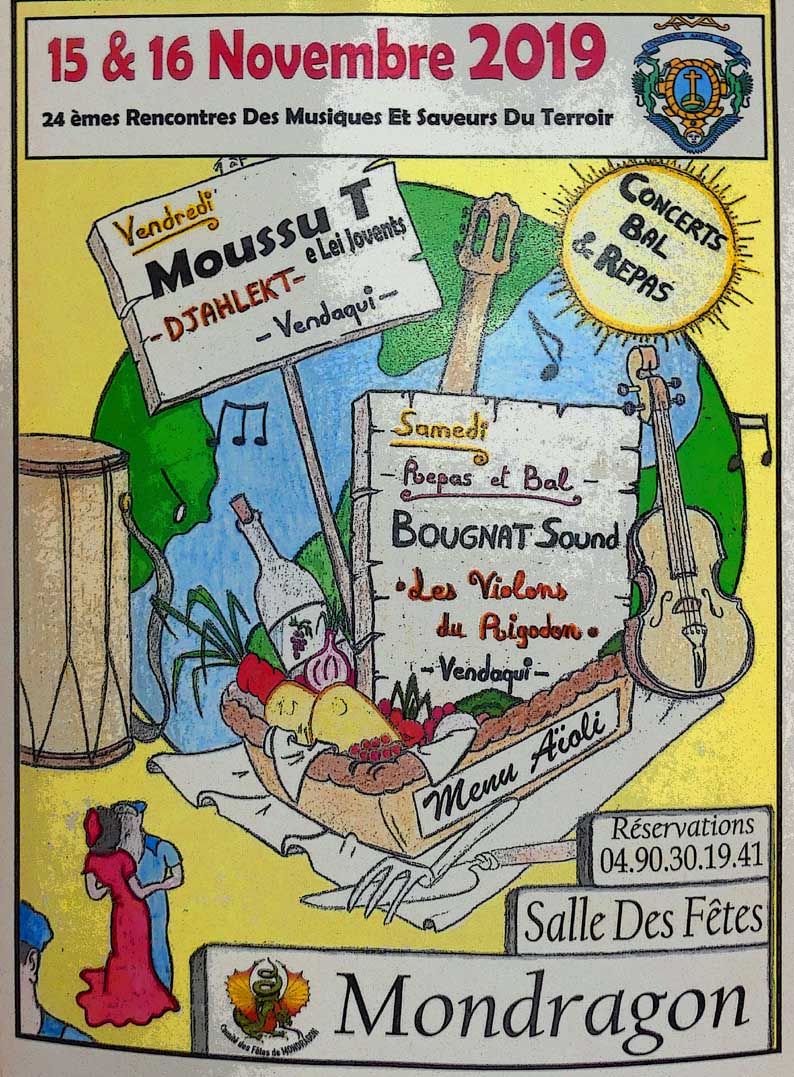 15 & 16 Novembre 2019
24 èmes Rencontres Des Musiques Et Saveurs Du Terroir
Vendredi
Moussu T
e Lei Jovents
-DJAHLEKT-
-Vendaqui-
CONCERTS
BAL
& REPAS
Samedi
-Repas et Bal-
BOUGNAT Sound
•Les Violons
du Rigodon•
-Vendaqui-
Menu Aïoli
Réservations
04.90.30.19.41
Salle Des Fêtes
Mondragon
Comité des Fêtes de MONDRAGON